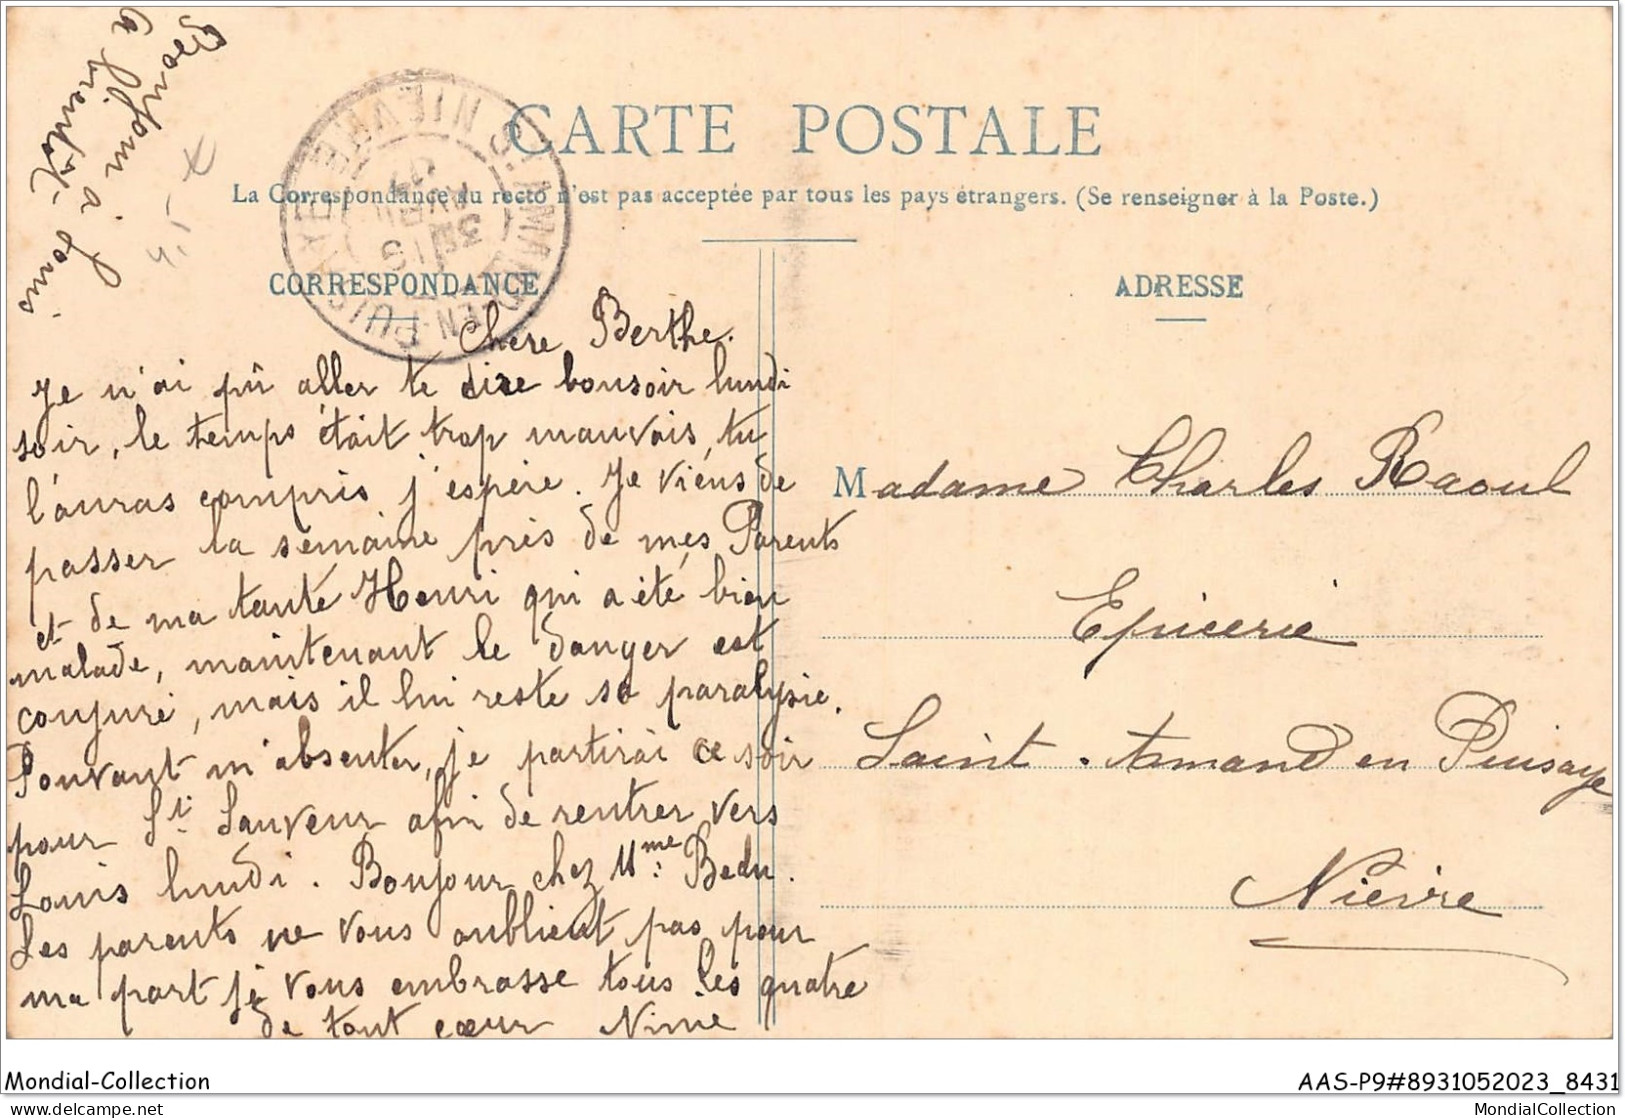 Bonjour à tous
à bientôt.
CARTE POSTALE
La Correspondance au recto n'est pas acceptée par tous les pays étrangers. (Se renseigner à la Poste.)
CORRESPONDANCE
ADRESSE
ST AMAND-EN-PUISAYE
NIEVRE
AVRIL
07
Chère Berthe.
Je n'ai pû aller te dire bonsoir lundi
soir, le temps était trop mauvais, tu
l'auras compris j'espère. Je viens de
passer la semaine près de mes Parents
et de ma tante Henri qui a été bien
malade, maintenant le danger est
conjuré, mais il lui reste sa paralysie.
Pouvant m'absenter, je partirai ce soir
pour St Sauveur afin de rentrer vers
Louis lundi. Bonjour chez Mme Bedu.
Les parents ne vous oublient pas pour
ma part je vous embrasse tous les quatre
de tout cœur Nime
Madame Charles Raoul
Epicerie
Saint-Amand en Puisaye
Nièvre
Mondial-Collection
AAS-P9#8931052023_8431
delcampe.net
MondialCollection